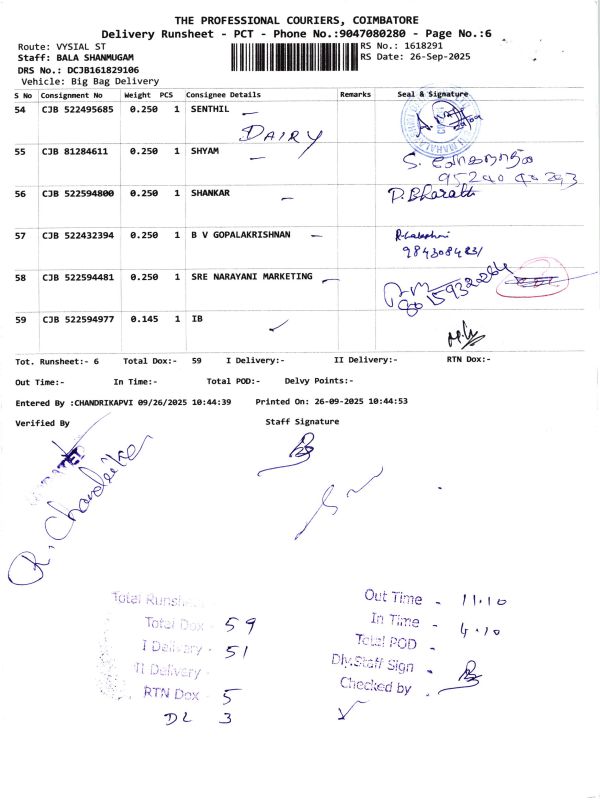 THE PROFESSIONAL COURIERS, COIMBATORE
Delivery Runsheet - PCT - Phone No.:9047080280 - Page No.:6
Route: VYSIAL ST RS No.: 1618291
Staff: BALA SHANMUGAM RS Date: 26-Sep-2025
DRS No.: DCJB161829106
Vehicle: Big Bag Delivery
S No Consignment No Weight PCS Consignee Details Remarks Seal & Signature
54 CJB 522495685 0.250 1 SENTHIL
DAIRY
55 CJB 81284611 0.250 1 SHYAM
56 CJB 522594800 0.250 1 SHANKAR P. Bharath
57 CJB 522432394 0.250 1 B V GOPALAKRISHNAN
58 CJB 522594481 0.250 1 SRE NARAYANI MARKETING
59 CJB 522594977 0.145 1 IB
Tot. Runsheet:- 6 Total Dox:- 59 I Delivery:- II Delivery:- RTN Dox:-
Out Time:- In Time:- Total POD:- Delvy Points:-
Entered By :CHANDRIKAPVI 09/26/2025 10:44:39 Printed On: 26-09-2025 10:44:53
Verified By Staff Signature
R. Chandrika
Out Time - 11.10
Total Dox - 59 In Time - 4.10
I Delivery - 51 Total POD -
II Delivery - Dly.Staff Sign -
RTN Dox - 5 Checked by -
DL 3